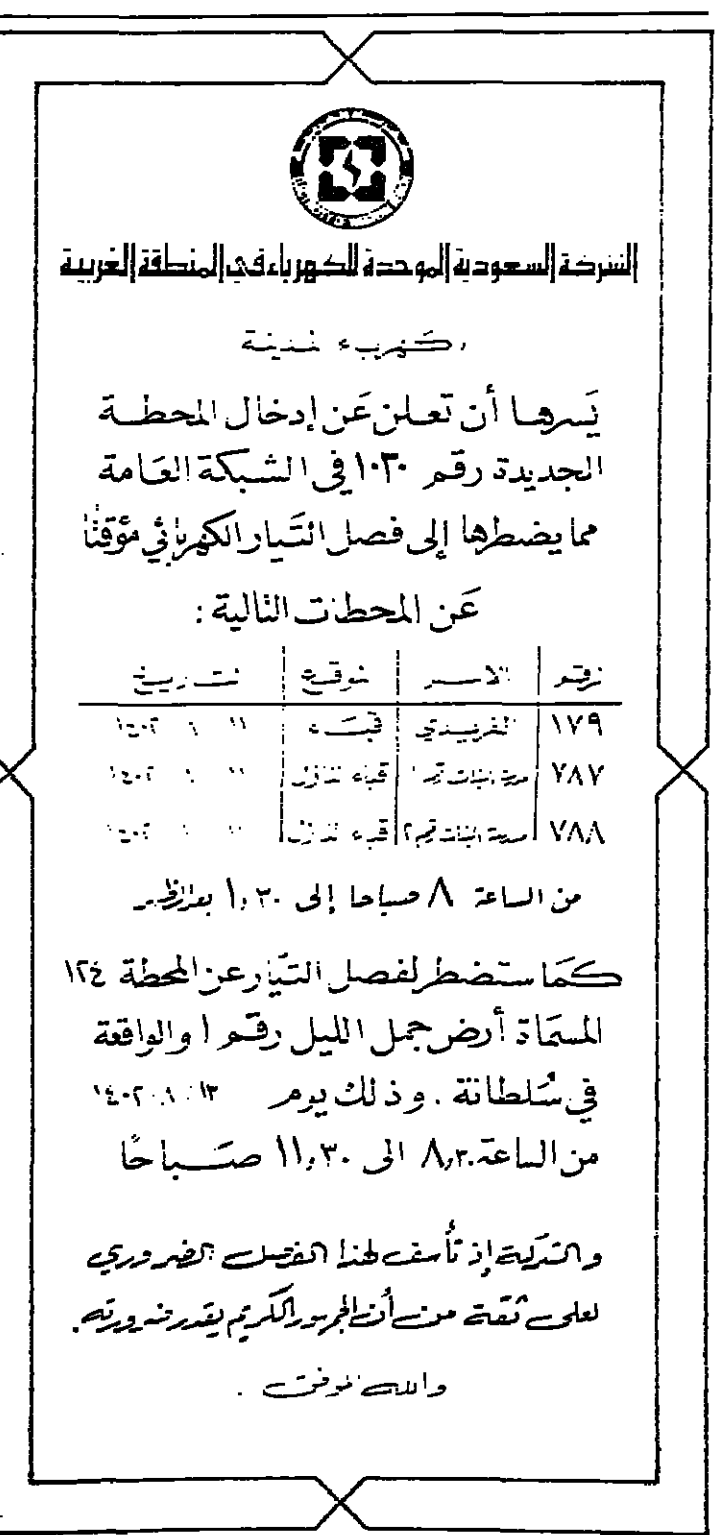 الشركة السعودية الموحدة للكهرباء في المنطقة الغربية
كهرباء المدينة
يَسرها أن تعلن عَن إدخال المحطة
الجديدة رقم ١٠٣٠ في الشبكة العَامة
مما يضطرها إلى فصل التَيار الكهربائي مؤقتًا
عَن المحطات التالية :
الرقم الاسم الموقع التاريخ
١٧٩ قباء ١١ ١ ١٤٠٢
٧٨٧ مدرسة البنات رقم ١ قباء النازل ١١ ١ ١٤٠٢
٧٨٨ مدرسة البنات رقم ٢ قباء النازل ١١ ١ ١٤٠٢
من الساعة ٨ صباحا إلى ١,٣٠ بعد الظهر
كمَا ستضطر لفصل التيّار عن المحطة ١٢٤
المسمَاة أرض جمل الليل رقم ١ والواقعة
في سُلطانة . وذلك يوم ١٤٠٢
من الساعة ٨,٣٠ الى ١١,٣٠ صبَاحًا
والشركة إذ تأسف لهذا الفصل الضروري
لعلى ثقة من أن الجمهور الكريم يقدر ضرورته.
والله الموفق .